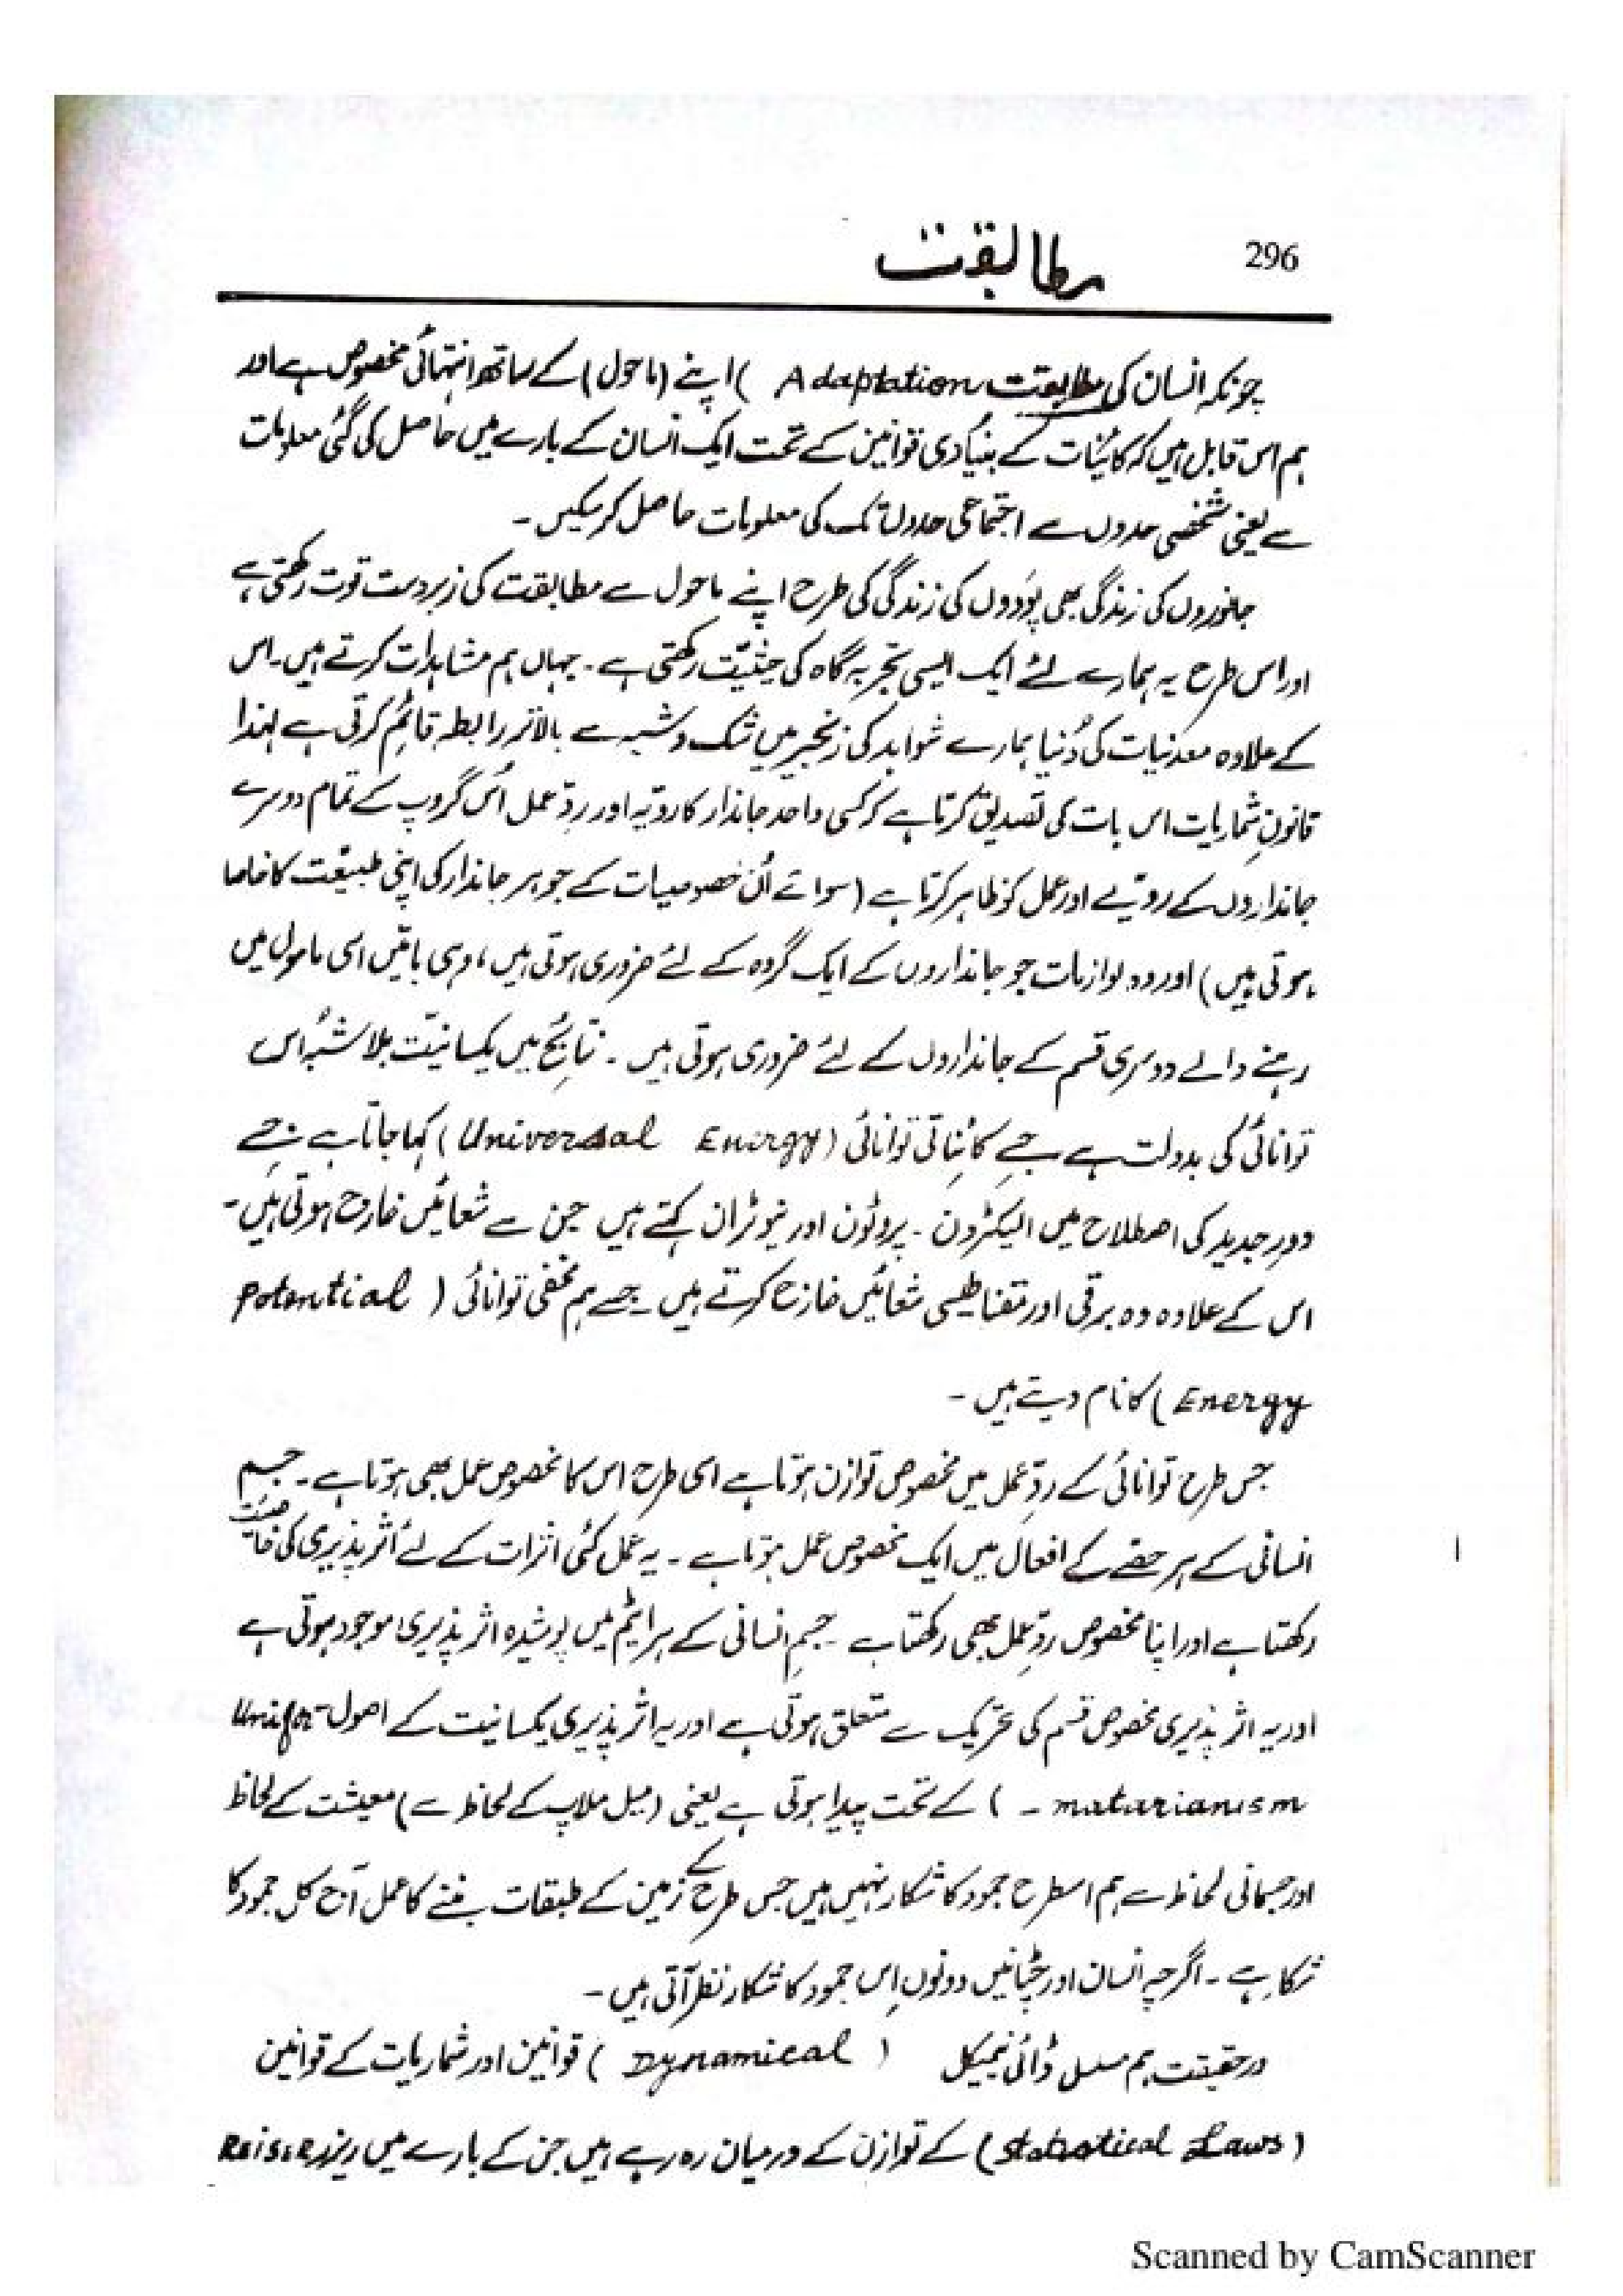 296
مطابقت
چونکہ انسان کی مطابقت Adaptation ) اپنے (ماحول) کے ساتھ انتہائی مخصوص ہے اور
ہم اس قابل ہیں کہ کائنات کے بنیادی قوانین کے تحت ایک انسان کے بارے میں حاصل کی گئی معلومات
سے یعنی شخصی حدوں سے اجتماعی حدوں تک کی معلومات حاصل کرسکیں ۔
جانوروں کی زندگی بھی پودوں کی زندگی کی طرح اپنے ماحول سے مطابقت کی زبردست قوت رکھتی ہے
اور اس طرح یہ ہمارے لئے ایک ایسی تجربہ گاہ کی حیثیّت رکھتی ہے ۔ جہاں ہم مشاہدات کرتے ہیں ۔ اس
کے علاوہ معدنیات کی دُنیا ہمارے شواہد کی زنجیر میں شک و شبہ سے بالاتر رابطہ قائم کرتی ہے لہٰذا
قانونِ شماریات اس بات کی تصدیق کرتا ہے کہ کسی واحد جاندار کا رویّہ اور ردِّ عمل اُس گروپ کے تمام دوسرے
جانداروں کے رویّے اور عمل کو ظاہر کرتا ہے (سوائے اُن خصوصیات کے جو ہر جاندار کی اپنی طبیعّت کا خاصا
ہوتی ہیں) اور وہ لوازمات جو جانداروں کے ایک گروہ کے لئے ضروری ہوتی ہیں ، وہی باتیں اسی ماحول میں
رہنے والے دوسری قسم کے جانداروں کے لئے ضروری ہوتی ہیں ۔ نتائج میں یکسانیّت بلاشُبہ اُس
توانائی کی بدولت ہے جسے کائناتی توانائی (Universal Energy) کہا جاتا ہے جسے
دورِ جدید کی اصطلاح میں الیکٹرون ۔ پروٹون اور نیوٹران کہتے ہیں جن سے شعائیں خارج ہوتی ہیں ۔
اس کے علاوہ وہ برقی اور مقناطیسی شعائیں خارج کرتے ہیں ۔ جسے ہم مخفی توانائی ( Potential
Energy) کا نام دیتے ہیں ۔
جس طرح توانائی کے ردِّ عمل میں مخصوص توازن ہوتا ہے اسی طرح اس کا مخصوص عمل بھی ہوتا ہے ۔ جسم
انسانی کے ہر حصّے کے افعال میں ایک مخصوص عمل ہوتا ہے ۔ یہ عمل کئی اثرات کے لئے اثر پذیری کی خاصیّت
رکھتا ہے اور اپنا مخصوص ردِّ عمل بھی رکھتا ہے ۔ جسمِ انسانی کے ہر ایٹم میں پوشیدہ اثر پذیری موجود ہوتی ہے
اور یہ اثر پذیری مخصوص قسم کی تحریک سے متعلق ہوتی ہے اور یہ اثر پذیری یکسانیت کے اصول Unifor-
matarianism - ) کے تحت پیدا ہوتی ہے یعنی (میل ملاپ کے لحاظ سے) معیشت کے لحاظ
اور جسمانی لحاظ سے ہم اسطرح جمود کا شکار نہیں ہیں جس طرح کے زمین کے طبقات بننے کا عمل آج کل جمود کا
شکار ہے ۔ اگرچہ انسان اور چٹانیں دونوں اِس جمود کا شکار نظر آتی ہیں ۔
درحقیقت ہم مسلسل ڈائنیمیکل ( Dynamical ) قوانین اور شماریات کے قوانین
(Statistical Laws) کے توازن کے درمیان رہ رہے ہیں جن کے بارے میں ریزر Reiser
Scanned by CamScanner